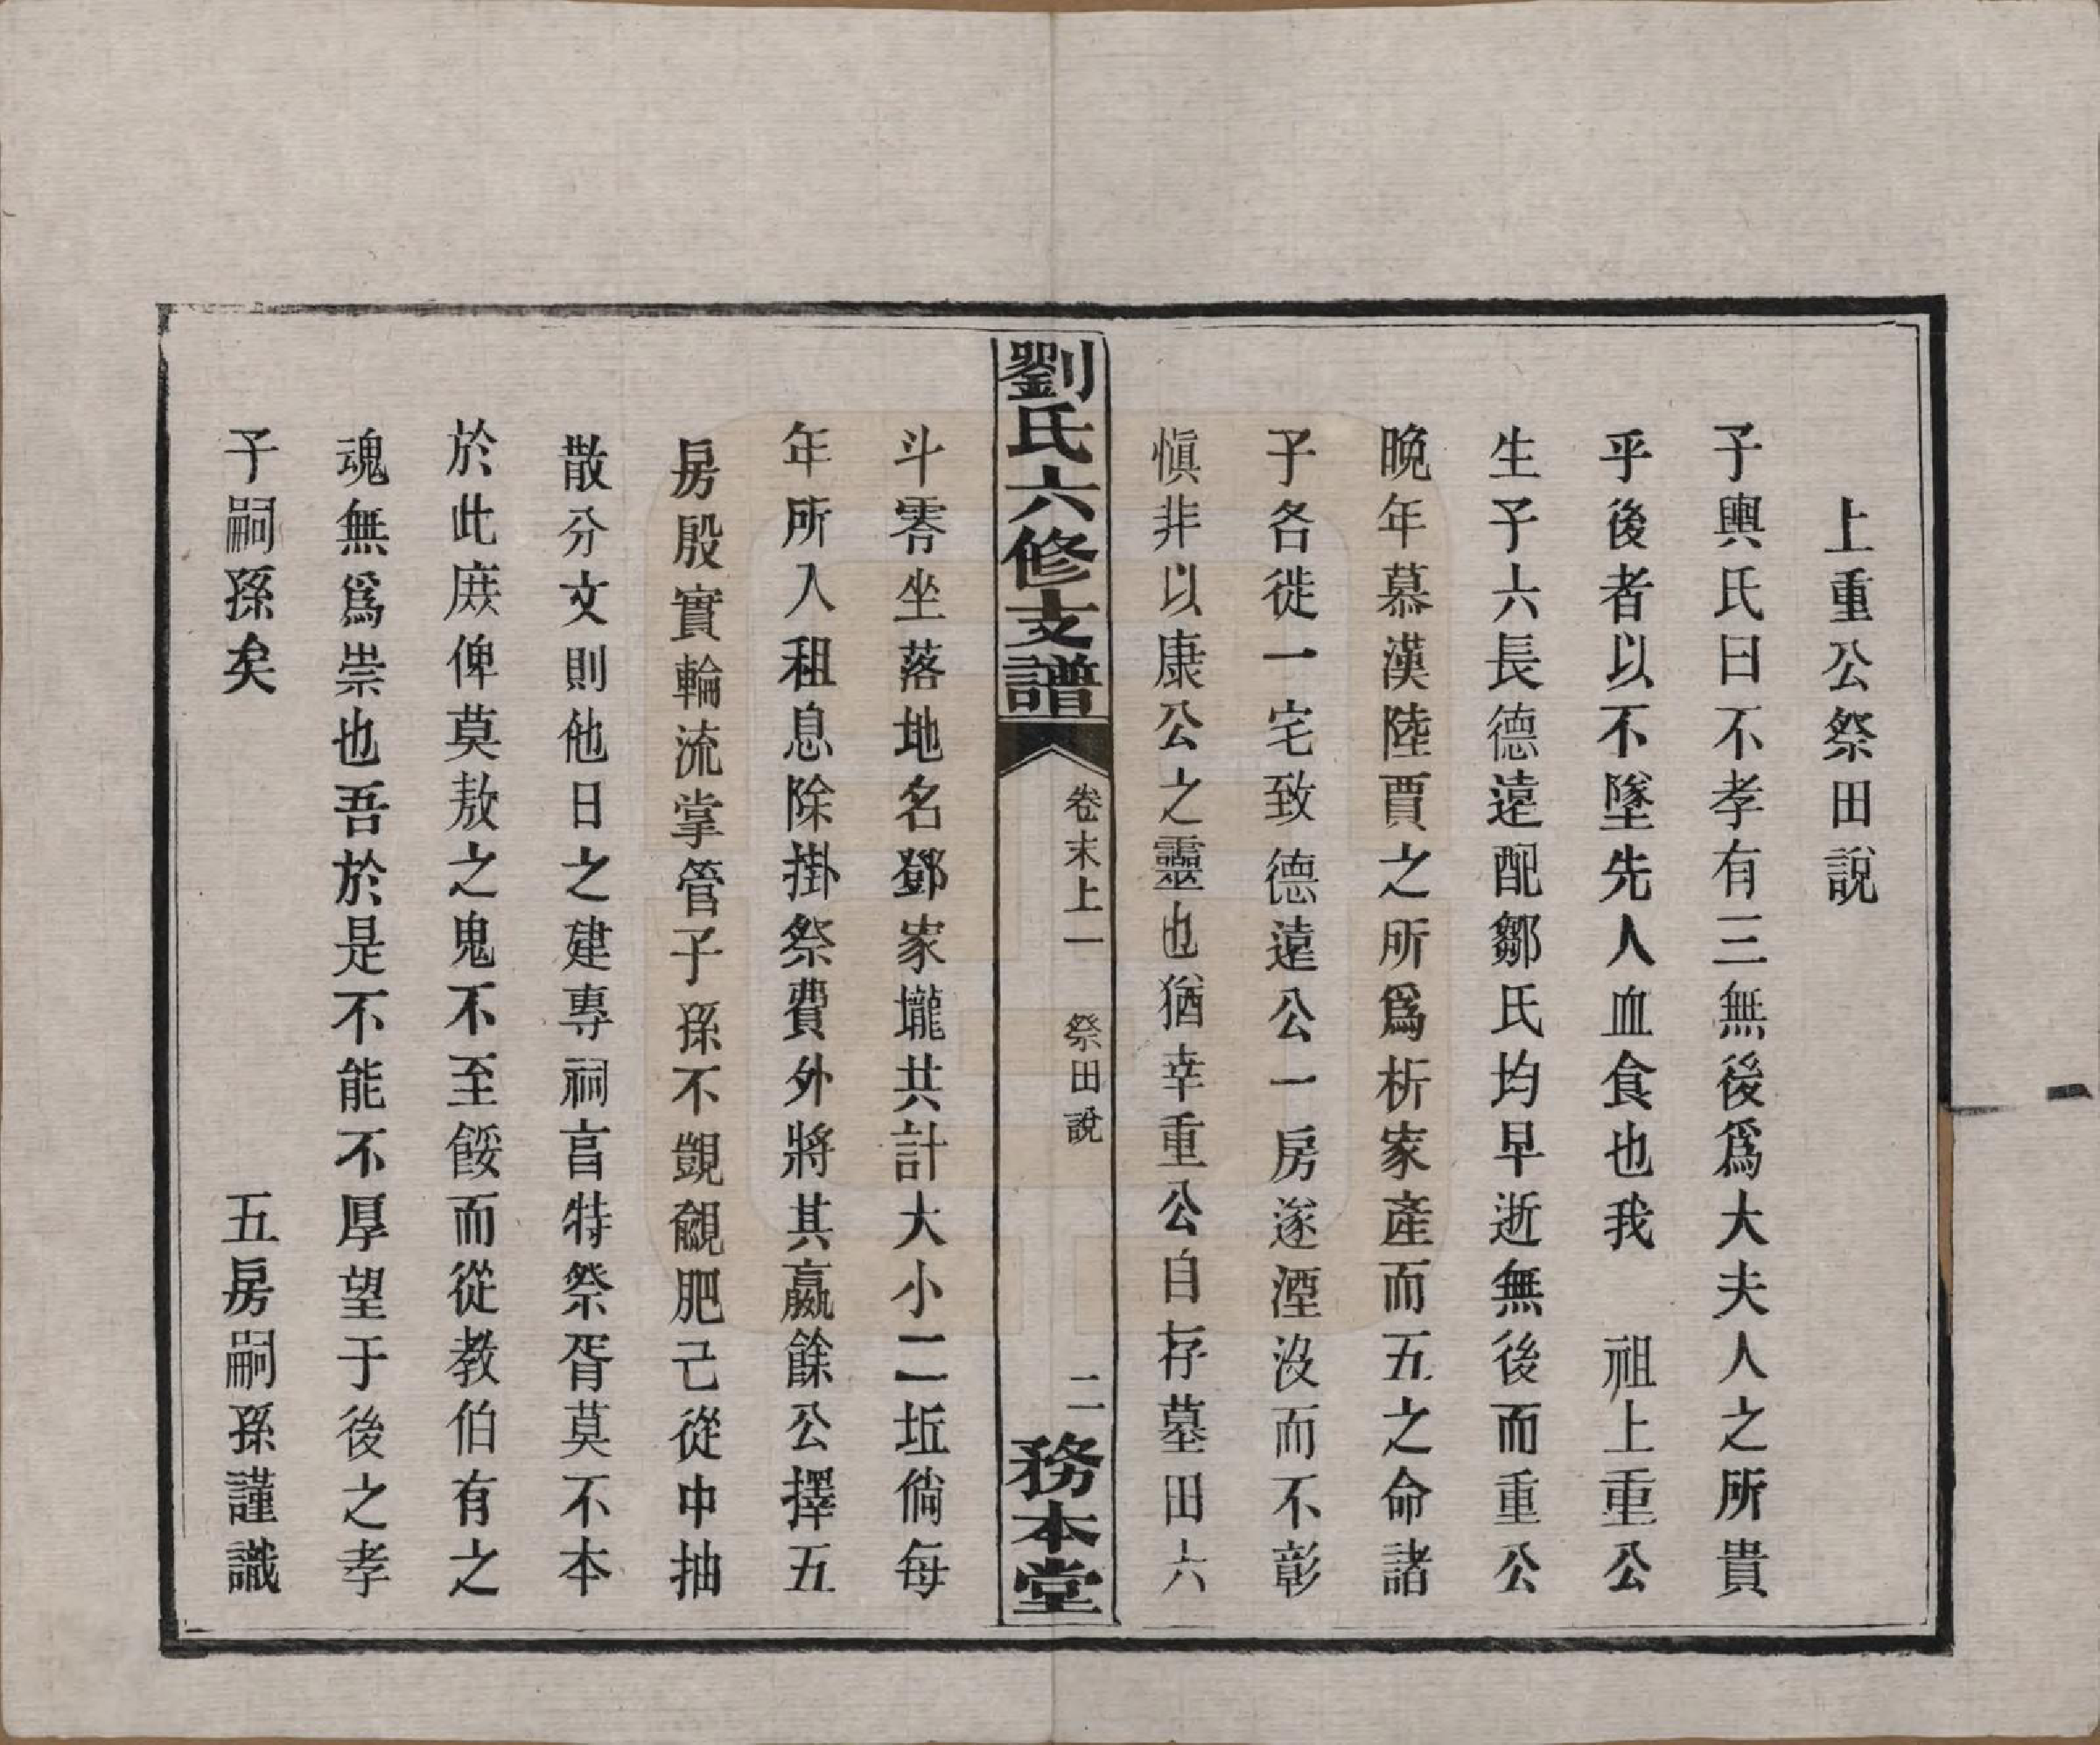 上重公祭田說
子輿氏曰不孝有三無後爲大夫人之所貴
乎後者以不墜先人血食也我　祖上重公
生子六長德遠配鄒氏均早逝無後而重公
晚年慕漢陸賈之所爲析家產而五之命諸
子各徙一宅致德遠公一房遂湮沒而不彰
愼非以康公之靈也猶幸重公自存墓田六
劉氏六修支譜
卷末上一　祭田說
二
務本堂
斗零坐落地名鄧家壠共計大小二坵倘每
年所入租息除掛祭費外將其贏餘公擇五
房殷實輪流掌管子孫不覬覦肥己從中抽
散分文則他日之建專祠亯特祭胥莫不本
於此庶俾莫敖之鬼不至餒而從教伯有之
魂無爲祟也吾於是不能不厚望于後之孝
子嗣孫矣
五房嗣孫謹識